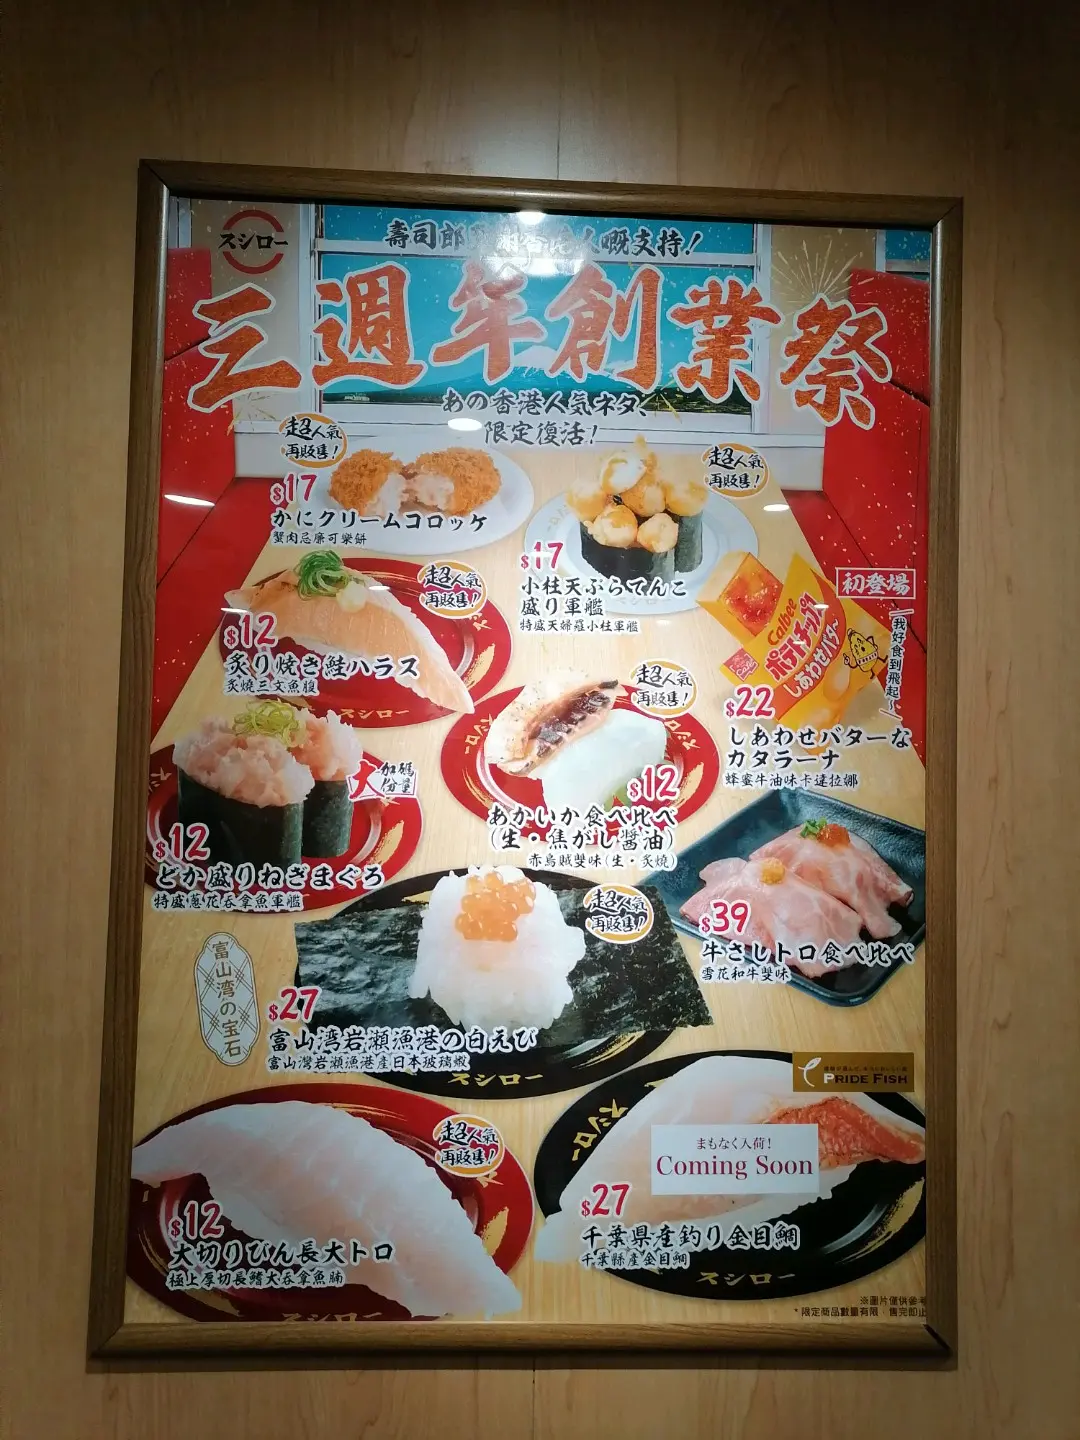 スシロー
壽司郎
人嘅支持！
三週年創業祭
あの香港人気ネタ、
限定復活！
超人氣
再販售！
$17
かにクリームコロッケ
蟹肉忌廉可樂餅
超人氣
再販售！
$17
小柱天ぷらてんこ
盛り軍艦
特盛天婦羅小柱軍艦
超人氣
再販售！
$12
炙り焼き鮭ハラス
炙燒三文魚腹
スシロー
初登場
我好食到飛起~
Calbee
ポテトチップス
しあわせバタ～
$22
しあわせバターな
カタラーナ
蜂蜜牛油味卡達拉娜
超人氣
再販售！
$12
あかいか食べ比べ
(生・焦がし醤油)
赤烏賊雙味(生・炙燒)
大加碼
份量
$12
どか盛りねぎまぐろ
特盛蔥花吞拿魚軍艦
$39
牛さしトロ食べ比べ
雪花和牛雙味
超人氣
再販售！
富山湾の宝石
$27
富山湾岩瀬漁港の白えび
富山灣岩瀨漁港産日本玻璃蝦
スシロー
PRIDE FISH
超人氣
再販售！
$12
大切りびん長大トロ
極上厚切長鰭大吞拿魚腩
スシロー
まもなく入荷！
Coming Soon
$27
千葉県産釣り金目鯛
千葉縣産金目鯛
スシロー
※圖片僅供參考
*限定商品數量有限，售完即止